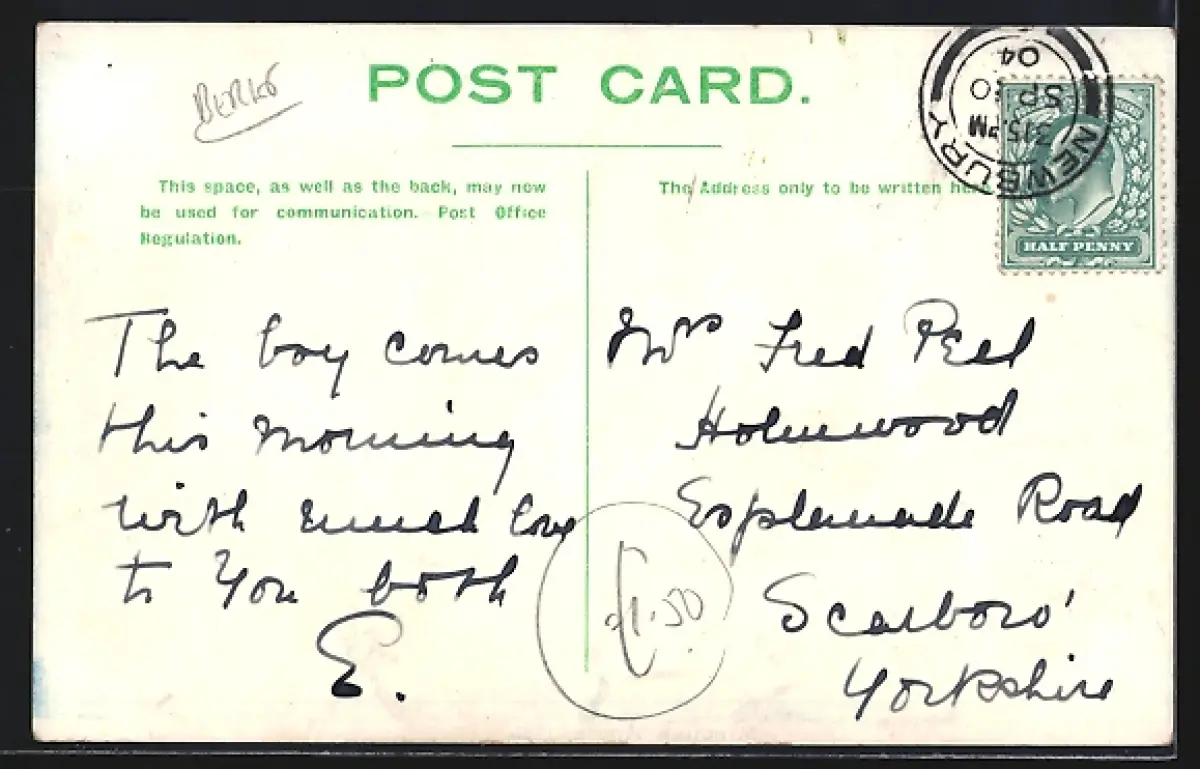 BERKS
POST CARD.
This space, as well as the back, may now
be used for communication. Post Office
Regulation.
The Address only to be written here
NEWBURY
3 15 PM
SP 30
04
HALF PENNY
The boy comes
this morning
with much love
to you both
E.
Mrs Fred Peel
Holmwood
Esplanade Road
Scarboro'
Yorkshire
£1.50